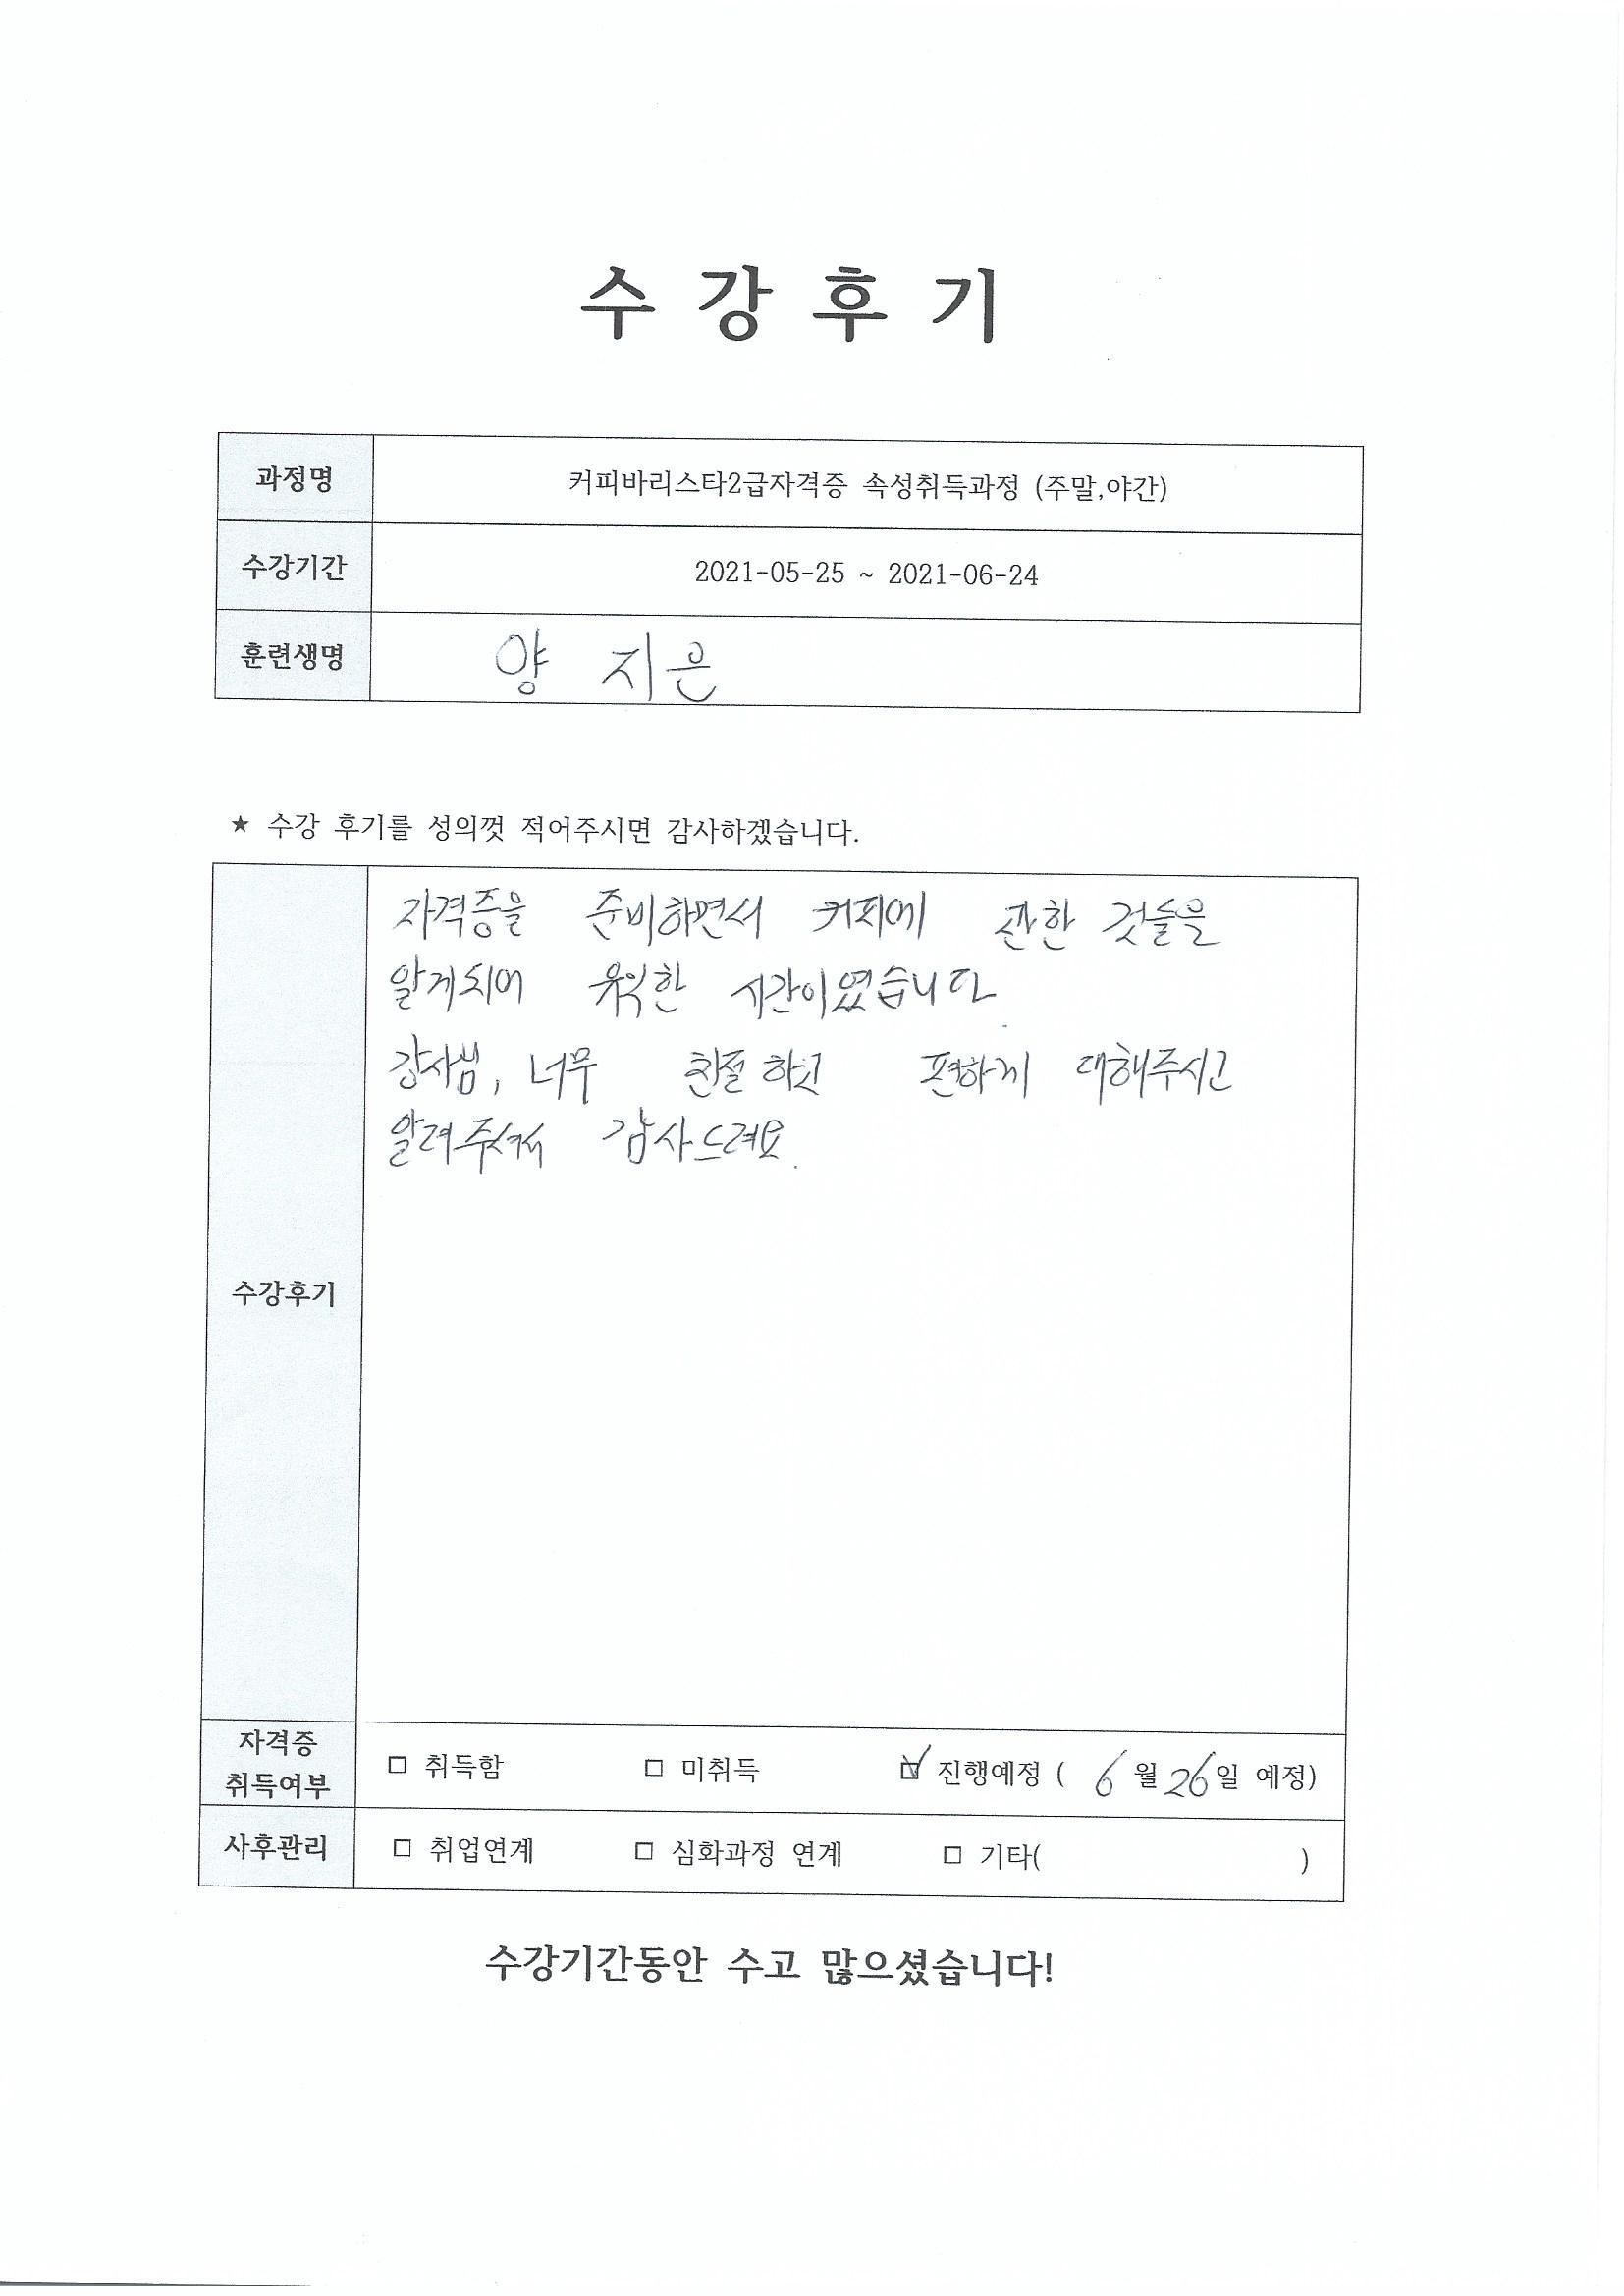 수 강 후 기
과정명 커피바리스타2급자격증 속성취득과정 (주말,야간)
수강기간 2021-05-25 ~ 2021-06-24
훈련생명 양 지은
★ 수강 후기를 성의껏 적어주시면 감사하겠습니다.
자격증을 준비하면서 커피에 관한 것들을
알게되어 유익한 시간이였습니다.
강사님, 너무 친절하고 편하게 대해주시고
알려주셔서 감사드려요.
수강후기
자격증
취득여부 □ 취득함 □ 미취득 ☑ 진행예정 ( 6 월 26 일 예정)
사후관리 □ 취업연계 □ 심화과정 연계 □ 기타( )
수강기간동안 수고 많으셨습니다!